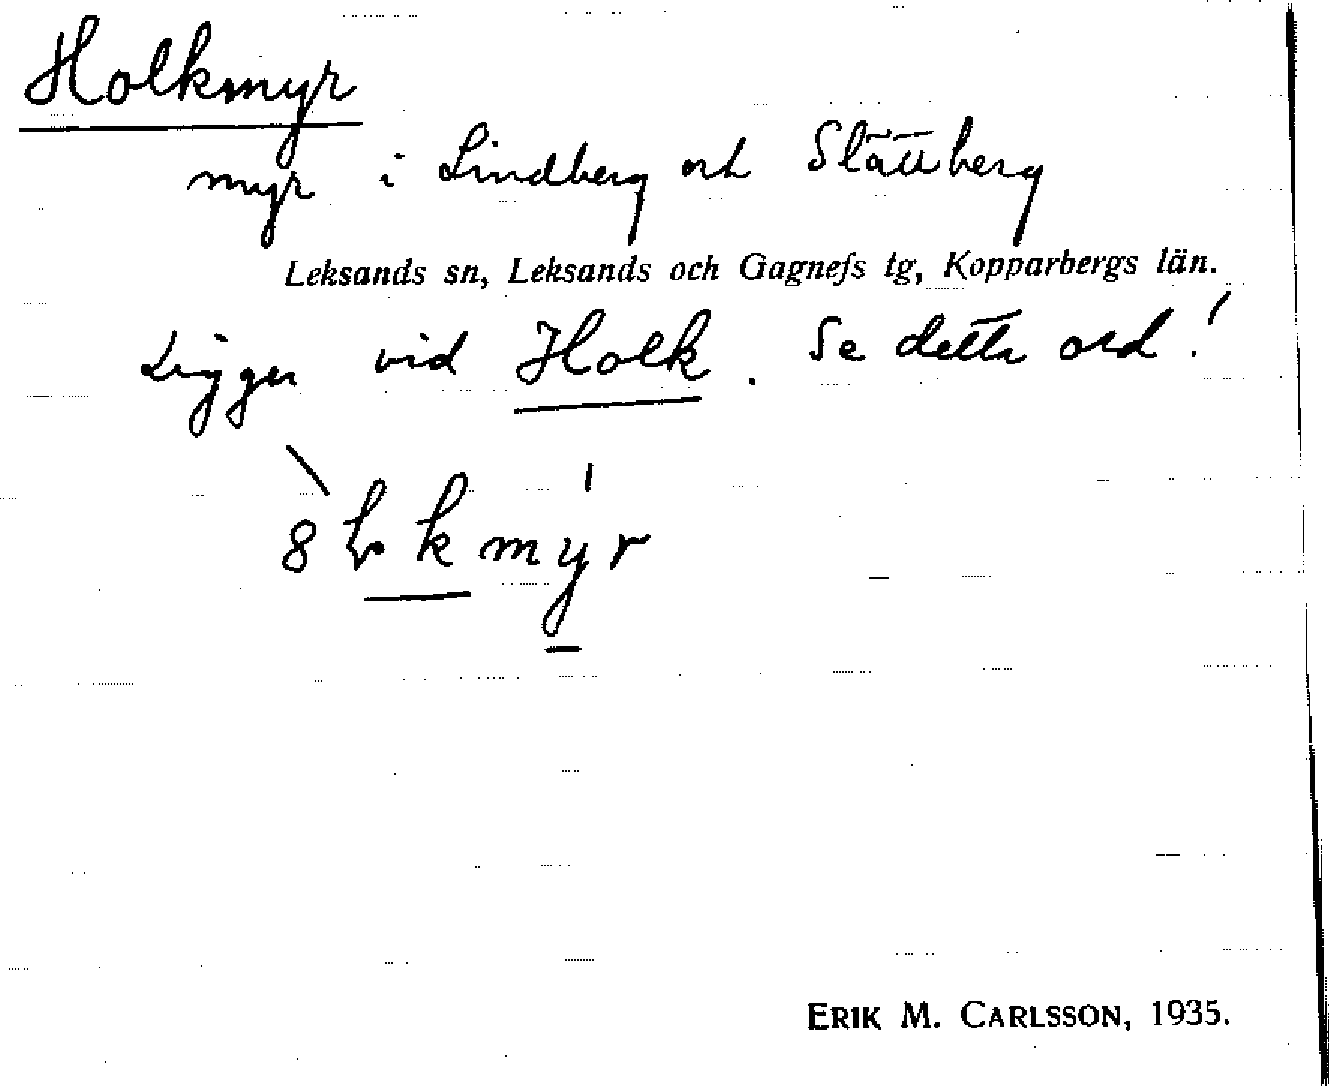 Holkmyr
myr i Lindberg och Slättberg
Leksands sn, Leksands och Gagnefs tg, Kopparbergs län.
Ligger vid Holk. Se detta ord!
ERIK M. CARLSSON, 1935.